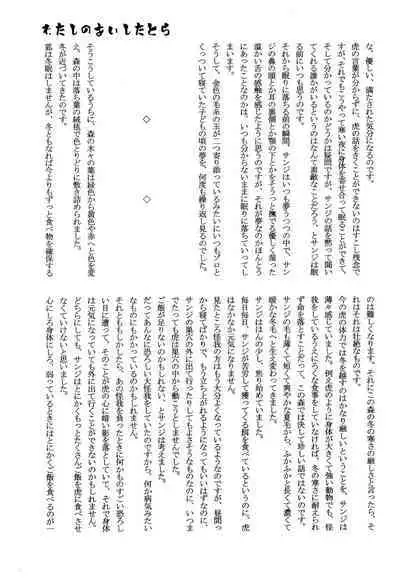 わたしのあいしたとら
な、優しい、満たされた気分になるのです。
虎の言葉が分からずに、虎の話をきくことができないのはすこし残念で
すが、それでもこうやって寒い夜に身体を寄せ合って眠ることができて、
そして分かっているのかどうかは疑問ですが、サンジの話を黙って聞い
てくれる誰かがいるというのはなんて素敵なことだろう、とサンジは眠
る前にいつも思うのです。
それから眠りに落ちる前の瞬間、サンジはいつも夢うつつの中で、サン
ジの鼻の頭とか耳の裏側とか顎の下とかをそうっと撫でる優しく湿った
温かい舌の感触を感じたように思うのですが、それが夢なのかほんとう
にあったことなのかは、いつも分からないままに眠りに落ちていってし
まいます。
そうして、金色の毛糸の玉が二つ寄り添っているみたいにいつもゾロと
くっついて寝ていた子どもの頃の夢を、何度も繰り返し見るのでした。
◇　◇
そうこうしているうちに、森の木々の葉は緑色から黄色や赤へと色を変
え、森の中は落ち葉の絨毯で色とりどりに敷き詰められました。
冬が近づいてきたのです。
狐は冬眠はしませんが、冬ともなれば今よりもずっと食べ物を確保する
のは難しくなります。それにこの森の冬の寒さの厳しさと言ったら、そ
れはそれは壮絶なものです。
今の虎の体力では冬を越すのはかなり厳しいということを、サンジは
薄々感じていました。例え虎のように身体が大きくて強い動物でも、怪
我をしているうえにろくな食事をしていなければ、冬の寒さに耐えられ
ず命を落とすことだって、この森では決して珍しい話ではないのです。
サンジの毛も薄くて短くて爽やかな夏毛から、ふかふかと長くて濃くて
暖かな冬毛へと生え変わってきました。
サンジはほんの少し、焦り始めていました。
毎日毎日、サンジが苦労して獲ってくる餌を食べているというのに、虎
はなかなか元気になりません。
見たところ怪我の方はもう大分よくなっているようなのですが、昼間っ
から寝てばかりで、もう立ち上がれるようになってもいいはずなのに、
サンジの巣穴の外に出て行ったりしてもよさそうなものなのに、いつま
でたっても虎は巣穴の中から動こうとしませんでした。
ご飯が足りないのかもしれない、とサンジは考えました。
だってあんなに恐ろしい大怪我をしていたのですから、何か病気みたい
なものにもかかっているのかもしれません。
それともももしかしたら、あの怪我を負ったときに何かものすごい恐ろし
い目に遭って、そのことが虎の心に暗い影を落としていて、それで身体
は元気になっていても外に出て行くことができないのかもしれない。
どちらにしても、サンジはとにかくもっとたくさんご飯を虎に食べさせ
なくていけないと思いました。
心にしろ身体にしろ、弱っているときにはとにかくご飯を食べるのが一